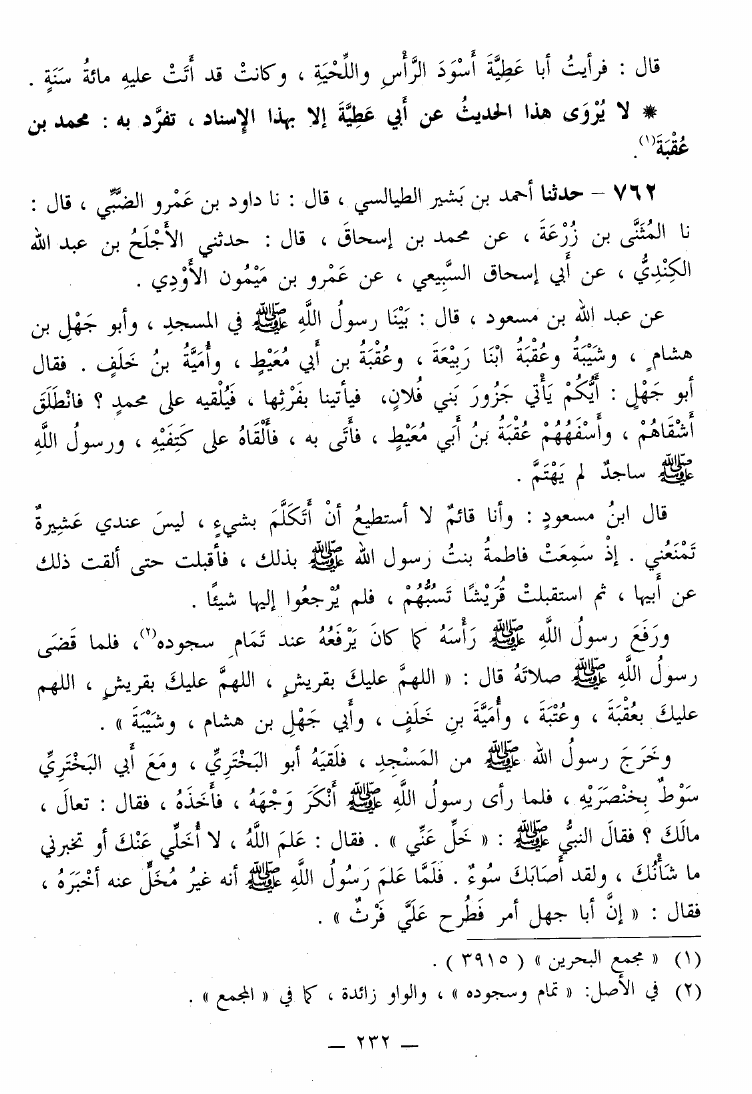 قال : فرأيتُ أبا عَطِيَّةَ أَسْوَدَ الرَّأْسِ واللِّحْيَةِ ، وكانتْ قد أَتَتْ عليهِ مائةُ سَنَةٍ .
* لا يُرْوَى هذا الحديثُ عن أَبي عَطِيَّةَ إلا بهذا الإسناد ، تفرَّد به : محمد بن
عُقْبَةَ(١).
٧٦٢ – حدثنا أحمد بن بَشير الطيالسي ، قال : نا داود بن عَمْرو الضَّبِّي ، قال :
نا المُثَنَّى بن زُرْعَةَ ، عن محمد بن إسحاقَ ، قال : حدثني الأَجْلَحُ بن عبد الله
الكِنْدِيُّ ، عن أَبي إسحاق السَّبِيعي ، عن عَمْرو بن مَيْمُون الأَوْدِي .
عن عبد الله بن مسعود ، قال : بَيْنَا رسولُ اللَّهِ ﷺ في المسجدِ ، وأبو جَهْلِ بن
هشامٍ ، وشَيْبَةُ وعُقْبَةُ ابْنَا رَبِيعَةَ ، وعُقْبَةُ بن أَبي مُعَيْطٍ ، وأُمَيَّةُ بنُ خَلَفٍ . فقال
أبو جَهْلٍ : أَيُّكُمْ يَأْتي جَزُورَ بَني فُلانٍ، فيأتينا بفَرْثِها ، فَيُلْقيه على محمدٍ ؟ فانْطَلَقَ
أَشْقَاهُمْ ، وأَسْفَهُهُمْ عُقْبَةُ بنُ أَبي مُعَيْطٍ ، فأَتَى به ، فأَلْقَاهُ على كَتِفَيْهِ ، ورسولُ اللَّهِ
ﷺ ساجدٌ لم يَهْتَمَّ .
قال ابنُ مسعودٍ : وأنا قائمٌ لا أستطيعُ أنْ أَتَكَلَّمَ بشيءٍ ، ليسَ عندي عَشيرةٌ
تَمْنَعُني . إذْ سَمِعَتْ فاطمةُ بنتُ رسول الله ﷺ بذلك ، فأقبلت حتى ألقت ذلك
عن أَبيها ، ثم استقبلتْ قُرَيْشًا تَسُبُّهُمْ ، فلم يُرْجعُوا إليها شيئًا .
ورَفَعَ رسولُ اللَّهِ ﷺ رَأْسَهُ كما كانَ يَرْفَعُهُ عند تَمَامِ سجوده(٢)، فلما قَضَى
رسولُ اللَّهِ ﷺ صلاتَهُ قال : « اللهمَّ عليكَ بقريشٍ ، اللهمَّ عليكَ بقريشٍ ، اللهم
عليكَ بعُقْبَةَ ، وعُتْبَةَ ، وأُمَيَّةَ بنِ خَلَفٍ ، وأَبي جَهْلِ بن هشام ، وشَيْبَةَ » .
وخَرَجَ رسولُ الله ﷺ من المَسْجدِ ، فلَقيَهُ أبو البَخْتَرِيِّ ، ومَعَ أَبي البَخْتَرِيِّ
سَوْطٌ بِخْنصَرَيْهِ ، فلما رأى رسولُ اللَّهِ ﷺ أَنْكَرَ وَجْهَهُ ، فأَخَذَهُ ، فقال : تعالَ ،
مالَكَ ؟ فقالَ النبيُّ ﷺ : « خَلِّ عَنِّي » . فقال : عَلمَ اللَّهُ ، لا أُخَلِّي عَنْكَ أو تخبرني
ما شَأْنُكَ ، ولقد أَصَابَكَ سُوءٌ . فَلَمَّا عَلمَ رَسُولُ اللَّهِ ﷺ أنه غيرُ مُخَلٍّ عنه أخْبَرَهُ ،
فقال : « إنَّ أبا جهل أمر فَطُرح عَلَيَّ فَرْثٌ » .
(١) « مجمع البحرين » ( ٣٩١٥ ) .
(٢) في الأصل: « تمام وسجوده » ، والواو زائدة ، كما في « المجمع » .
– ٢٣٢ –